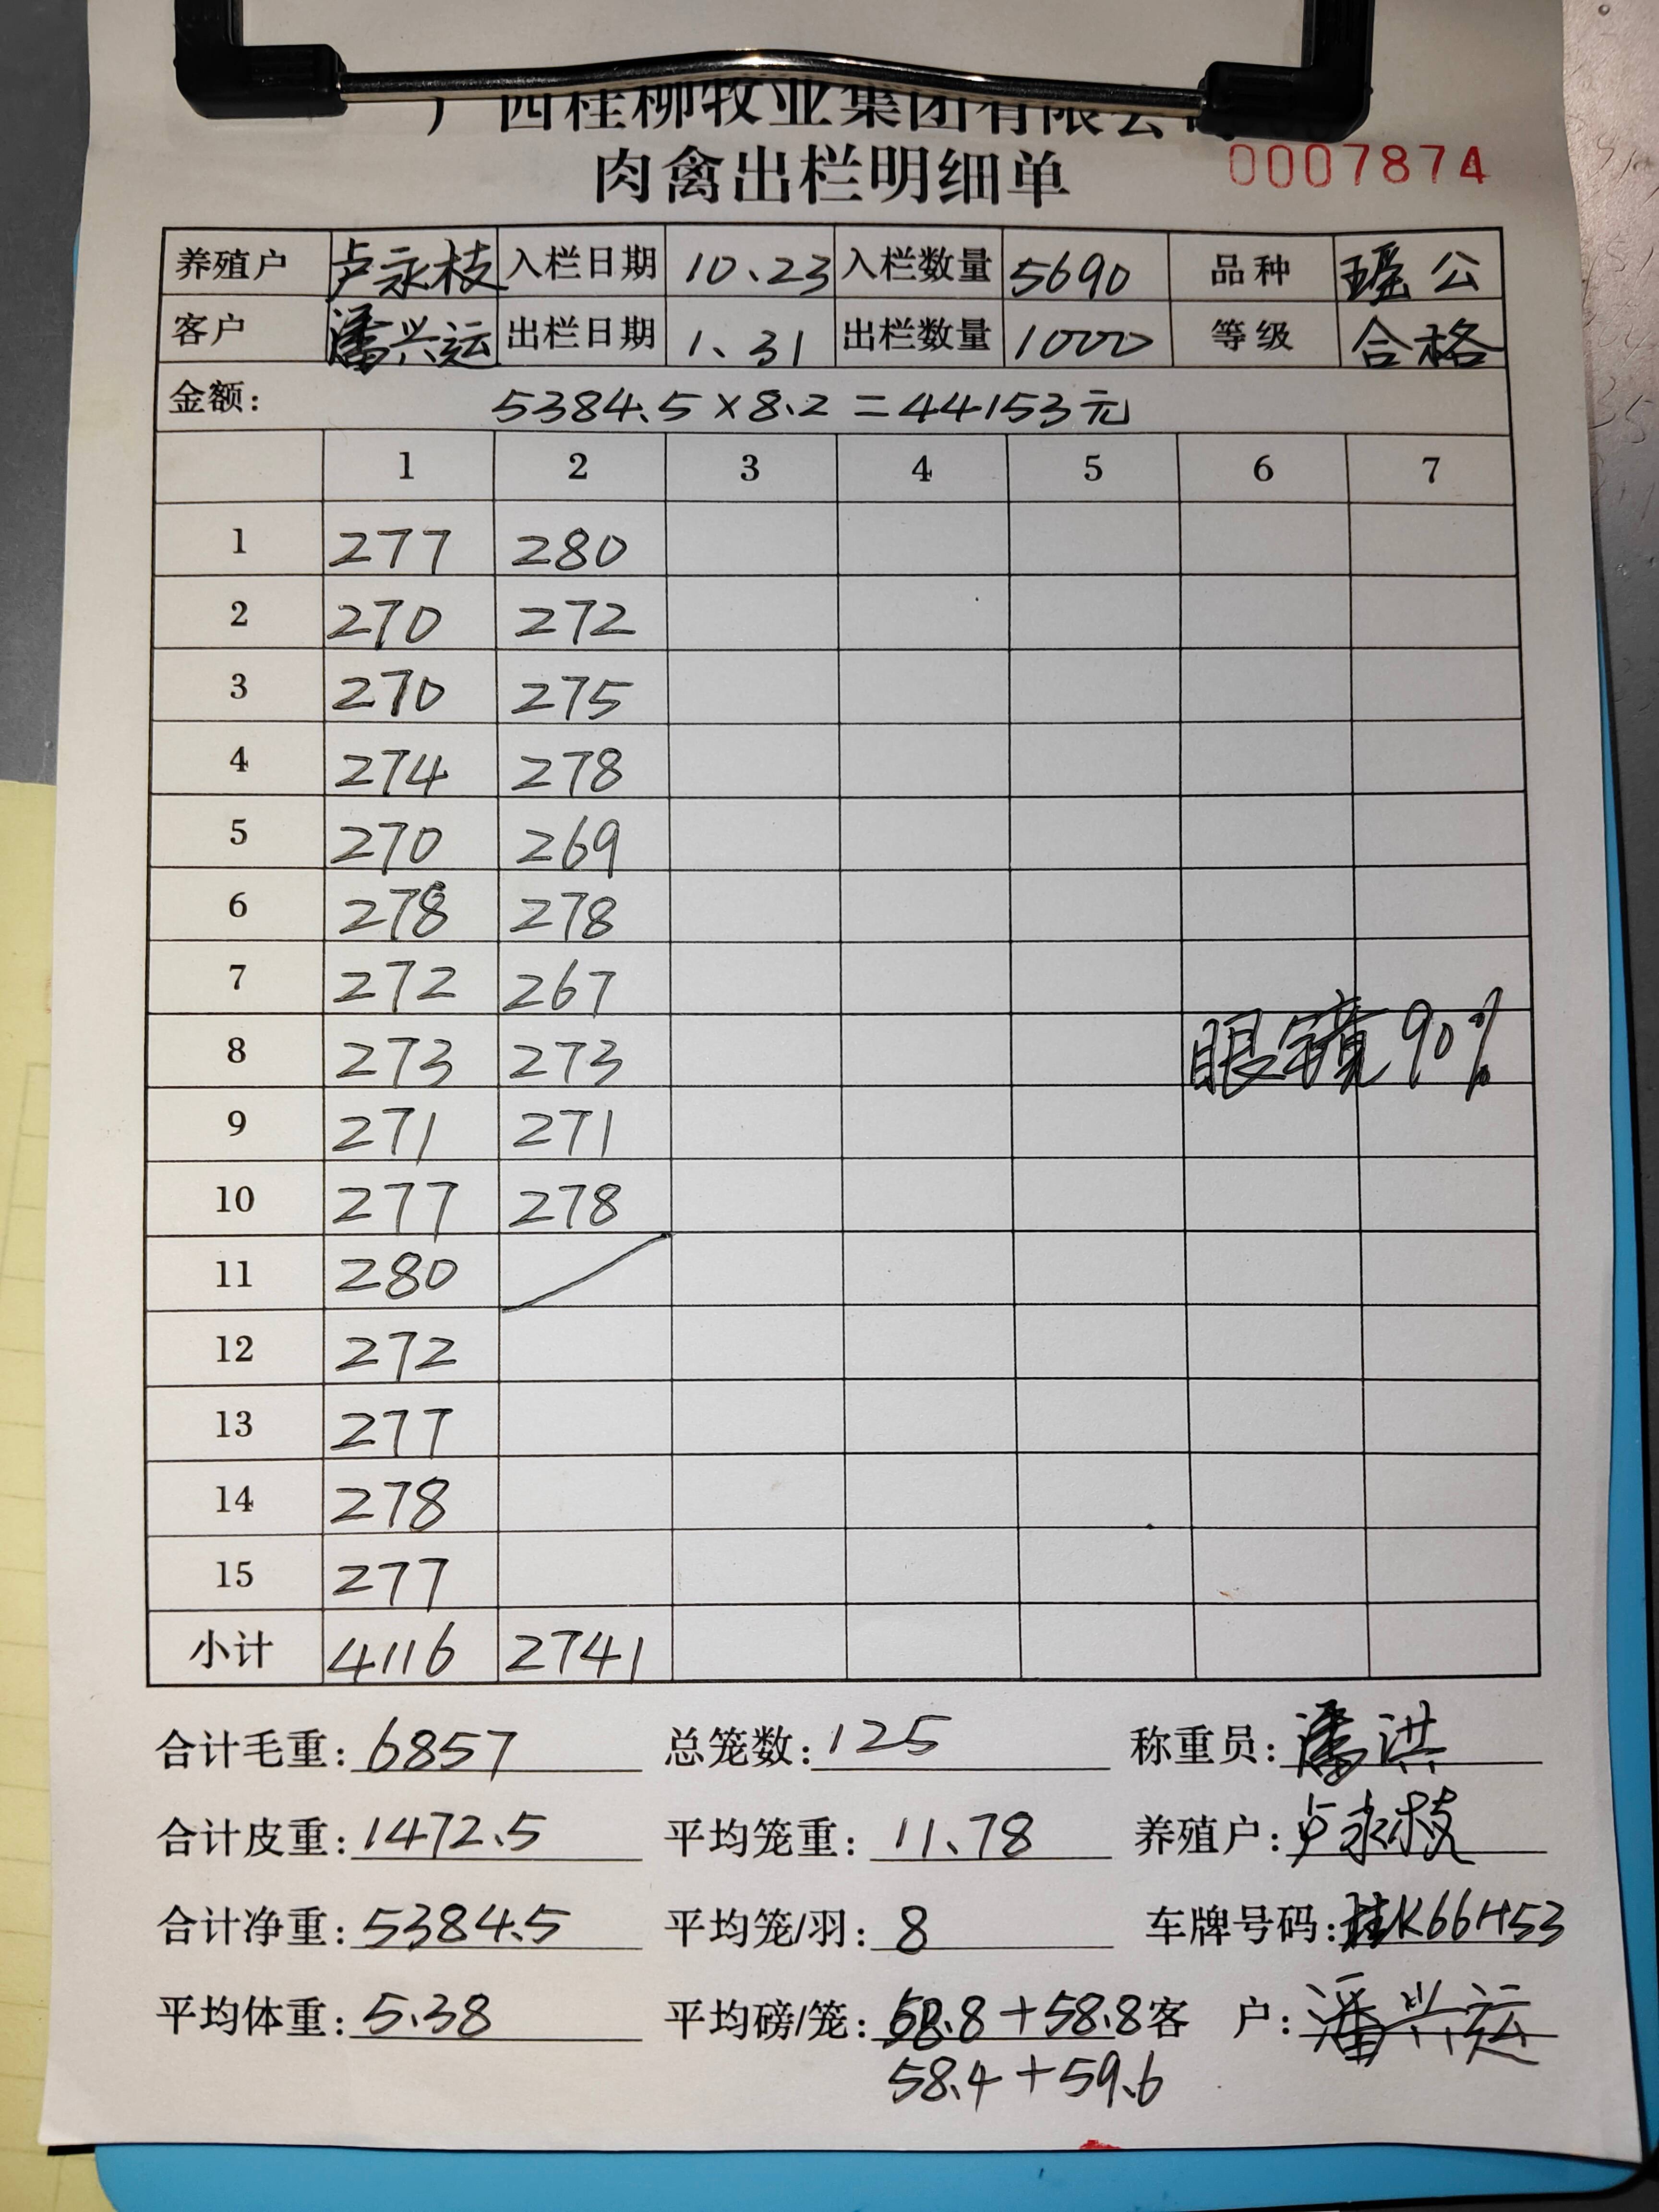 广西桂柳牧业集团有限公司
肉禽出栏明细单 0007874
养殖户 卢永枝 入栏日期 10.23 入栏数量 5690 品种 瑶公
客户 潘兴运 出栏日期 1.31 出栏数量 1000 等级 合格
金额: 5384.5×8.2=44153元
1 2 3 4 5 6 7
1 277 280
2 270 272
3 270 275
4 274 278
5 270 269
6 278 278
7 272 267
8 273 273 眼镜90%
9 271 271
10 277 278
11 280
12 272
13 277
14 278
15 277
小计 4116 2741
合计毛重: 6857 总笼数: 125 称重员: 潘洪
合计皮重: 1472.5 平均笼重: 11.78 养殖户: 卢永枝
合计净重: 5384.5 平均笼/羽: 8 车牌号码: 桂K66H53
平均体重: 5.38 平均磅/笼: 58.8+58.8 客户: 潘兴运
58.4+59.6